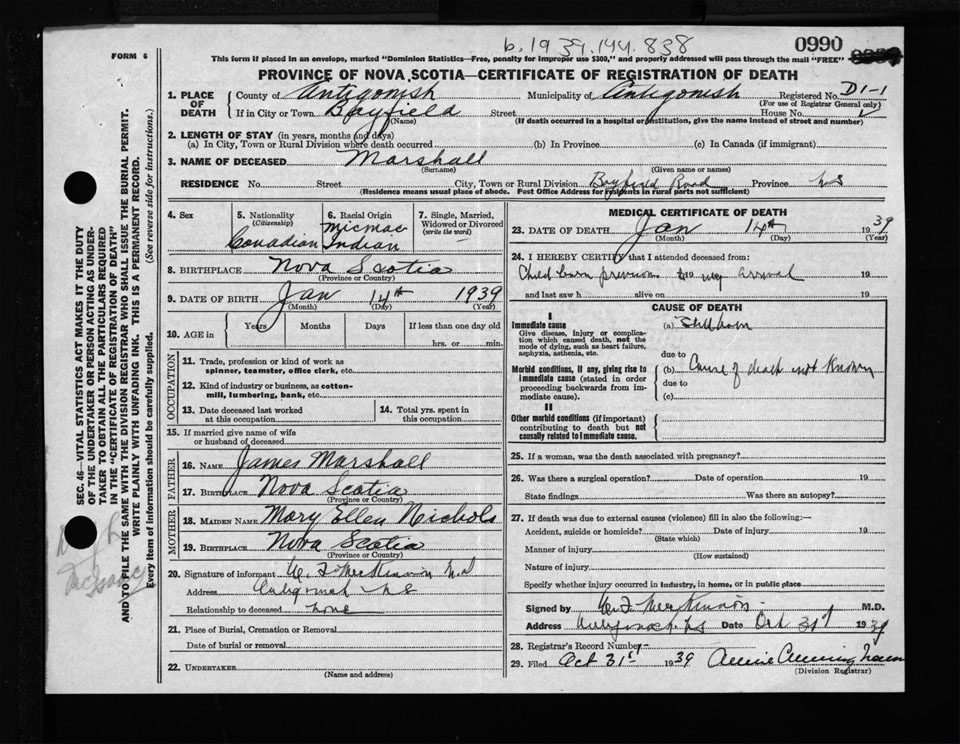 b. 1939.144.838
FORM 6
This form if placed in an envelope, marked "Dominion Statistics—Free, penalty for improper use $300," and properly addressed will pass through the mail "FREE"
0990
PROVINCE OF NOVA SCOTIA—CERTIFICATE OF REGISTRATION OF DEATH
1. PLACE OF DEATH
County of Antigonish Municipality of Antigonish Registered No. D1-1
(For use of Registrar General only)
If in City or Town Bayfield Street House No.
(Name) (If death occurred in a hospital or institution, give the name instead of street and number)
2. LENGTH OF STAY (in years, months and days)
(a) In City, Town or Rural Division where death occurred (b) In Province (c) In Canada (if immigrant)
3. NAME OF DECEASED Marshall
(Surname) (Given name or names)
RESIDENCE No. Street City, Town or Rural Division Bayfield Road Province NS
(Residence means usual place of abode. Post Office Address for residents in rural parts not sufficient)
4. Sex
5. Nationality (Citizenship) Canadian
6. Racial Origin Micmac Indian
7. Single, Married, Widowed or Divorced (write the word) —
8. BIRTHPLACE Nova Scotia
(Province or Country)
9. DATE OF BIRTH Jan 14th 1939
(Month) (Day) (Year)
10. AGE in Years Months Days If less than one day old
hrs. or min.
OCCUPATION
11. Trade, profession or kind of work as spinner, teamster, office clerk, etc.
12. Kind of industry or business, as cotton-mill, lumbering, bank, etc.
13. Date deceased last worked at this occupation
14. Total yrs. spent in this occupation
15. If married give name of wife or husband of deceased
FATHER
16. NAME James Marshall
17. BIRTHPLACE Nova Scotia
(Province or Country)
MOTHER
18. MAIDEN NAME Mary Ellen Nichols
19. BIRTHPLACE Nova Scotia
(Province or Country)
20. Signature of informant W. F. McKinnon M.D
Address Antigonish NS
Relationship to deceased None
21. Place of Burial, Cremation or Removal
Date of burial or removal
22. UNDERTAKER
(Name and address)
MEDICAL CERTIFICATE OF DEATH
23. DATE OF DEATH Jan 14th 1939
(Month) (Day) (Year)
24. I HEREBY CERTIFY that I attended deceased from:
Child born previous to my arrival 19
and last saw h alive on 19
CAUSE OF DEATH
I
Immediate cause (a) Stillborn
Give disease, injury or complication which caused death, not the mode of dying, such as heart failure, asphyxia, asthenia, etc.
due to
Morbid conditions, if any, giving rise to immediate cause (stated in order proceeding backwards from immediate cause).
(b) Cause of death not known
due to
(c)
II
Other morbid conditions (if important) contributing to death but not causally related to immediate cause.
25. If a woman, was the death associated with pregnancy?
26. Was there a surgical operation? Date of operation 19
State findings Was there an autopsy?
27. If death was due to external causes (violence) fill in also the following:
Accident, suicide or homicide? Date of injury 19
(State which)
Manner of injury
(How sustained)
Nature of injury
Specify whether injury occurred in industry, in home, or in public place
Signed by W. F. McKinnon M.D.
Address Antigonish NS Date Oct 31st 1939
28. Registrar's Record Number 1-
29. Filed Oct 31st 1939 Annie Cunningham
(Division Registrar)
SEC. 46—VITAL STATISTICS ACT MAKES IT THE DUTY
OF THE UNDERTAKER OR PERSON ACTING AS UNDER-
TAKER TO OBTAIN ALL THE PARTICULARS REQUIRED
IN THE "CERTIFICATE OF REGISTRATION OF DEATH"
AND TO FILE THE SAME WITH THE DIVISION REGISTRAR WHO SHALL ISSUE THE BURIAL PERMIT.
WRITE PLAINLY WITH UNFADING INK. THIS IS A PERMANENT RECORD.
Every item of information should be carefully supplied. (See reverse side for instructions.)